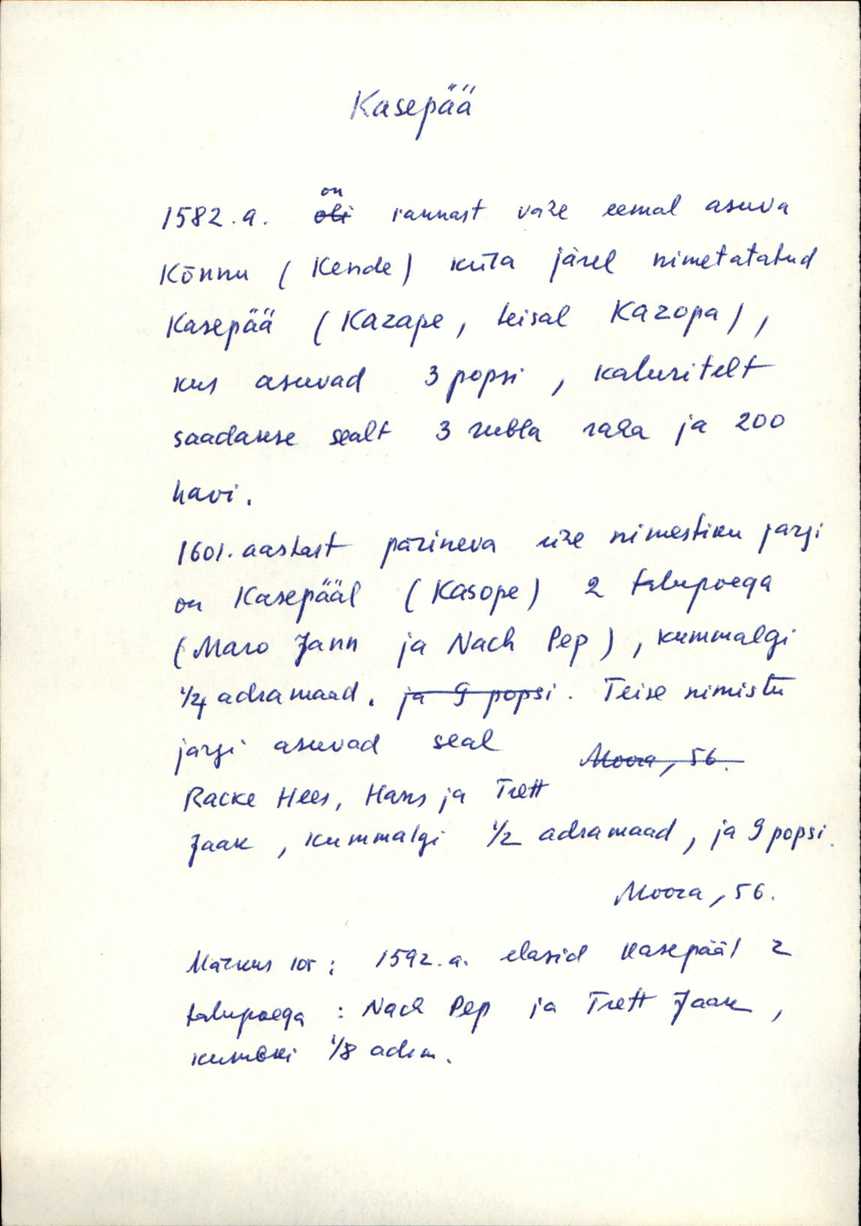 Kasepää
on
1582.a. oli rannast vähe eemal asuva
Kõnnu (Kende) küla järel nimetatatud
Kasepää (Kazape, teisal Kazopa),
kus asuvad 3 popsi, kaluritelt
saadakse sealt 3 rubla raha ja 200
havi.
1601. aastast pärineva ühe nimestiku järgi
on Kasepääl (Kasope) 2 talupoega
(Maro Jann ja Nach Pep), kummalgi
1/4 adramaad. ja 9 popsi. Teise nimistu
järgi asuvad seal
Moora, 56.
Racke Hees, Hans ja Trett
Jaak, kummalgi 1/2 adramaad, ja 9 popsi.
Moora, 56.
Märkus 105: 1592.a. elasid Kasepääl 2
talupoega: Nach Pep ja Trett Jaak,
kumbki 1/8 adrm.